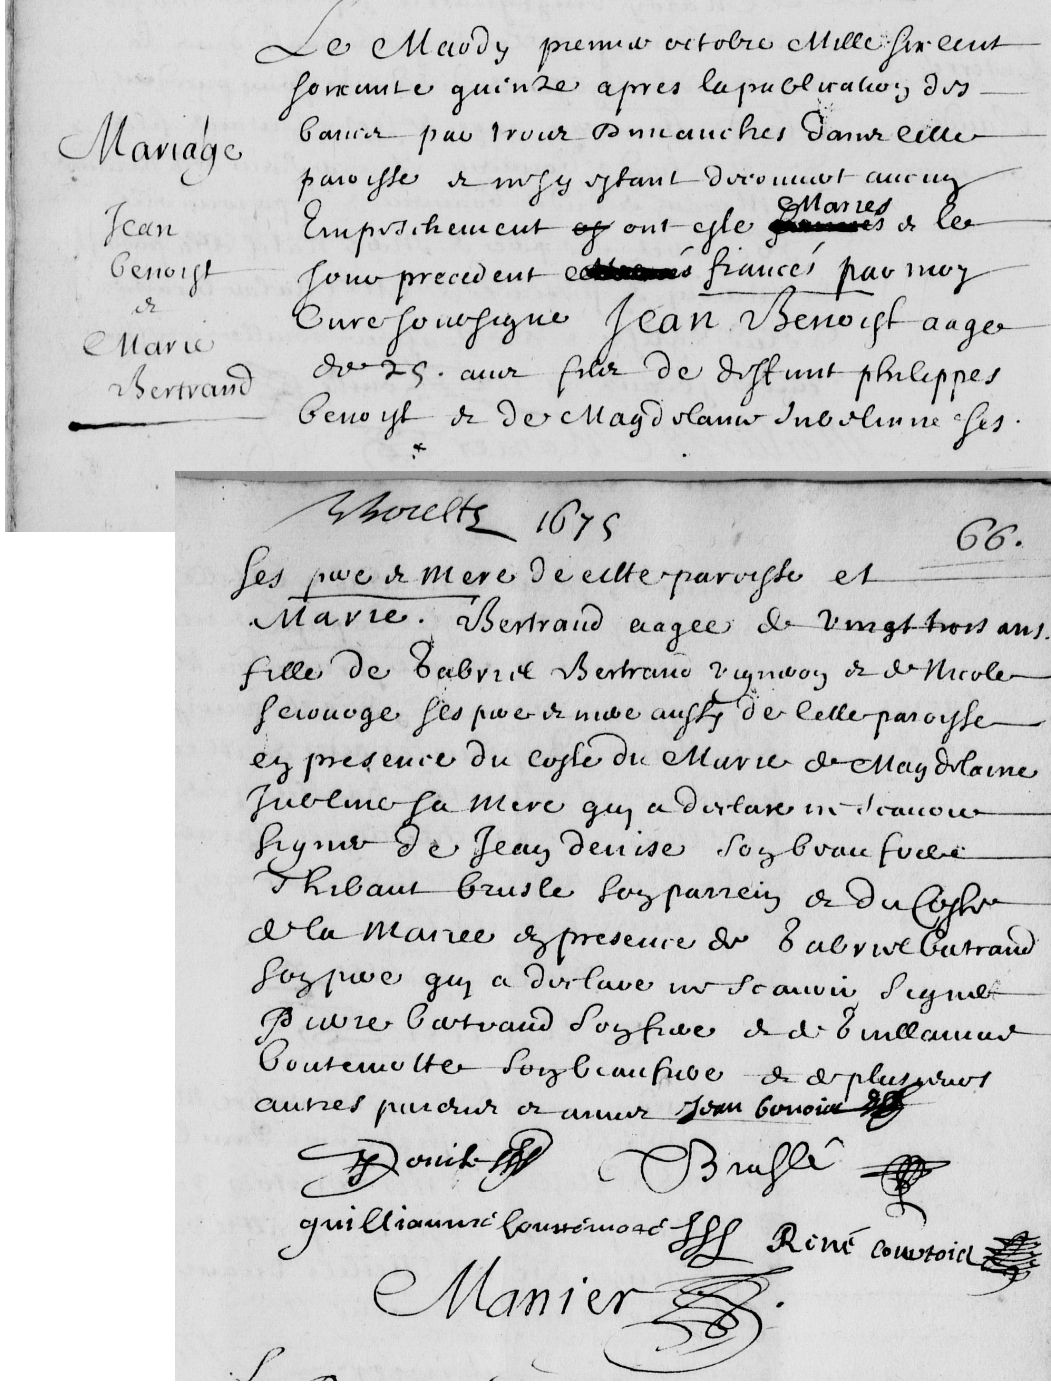 Mariage
Jean
benoist
&
Marie
Bertrand
Le Mardy premier octobre Mille six cent
soixante quinze apres la publication des
bancs par trois Dimanches dans cette
paroisse & ne sy estant decouvert aucun
Maries
Empeschement ont este & le
jour precedent fiancés par moy
Curé soubsigné Jean Benoist aagé
de 25. ans fils de deffunt philippes
benoist & de Magdelaine Jubeline ses
1675
66.
ses pere & mere de cette paroisse et
Marie. Bertrand aagee de vingt trois ans.
fille de Gabriel Bertrand vigneron & de Nicole
ses pere & mere aussy de cette paroisse
en presence du costé du Marié de Magdelaine
Jubeline sa Mere quy a declaré ne scavoir
signer de Jean denise son beau frere
Thibaut bruslé son parrein & du Costé
de la Mariee en presence de Gabriel bertrand
son pere quy a declaré ne scavoir signer
Pierre bertrand son frere & de Guillaume
boutemotte son beau frere & de plusieurs
autres parens & amis Jean benoist
Denise Bruslé
guilliaume boutemotte René courtois
Manier